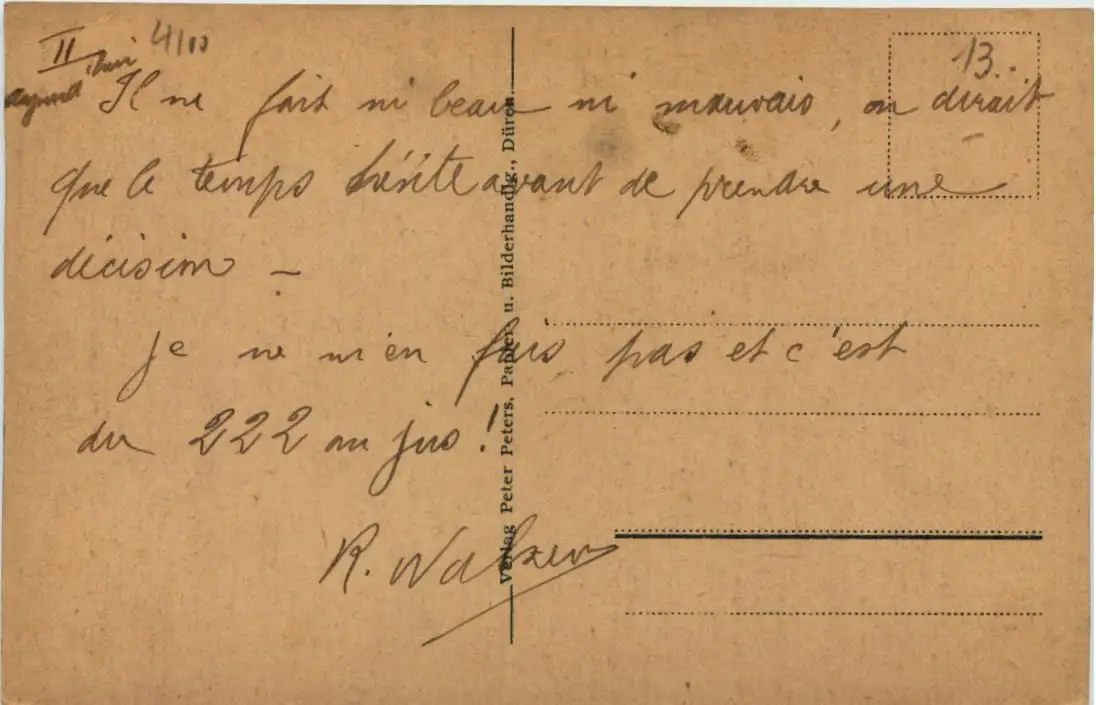 II 4/10
13.
Il ne fait ni beau ni mauvais, on dirait
que le temps hésite avant de prendre une
décision –
Je ne m'en fais pas et c'est
du 222 au jus !
R. Walzer
Verlag Peter Peters, Papier u. Bilderhandlg., Düren